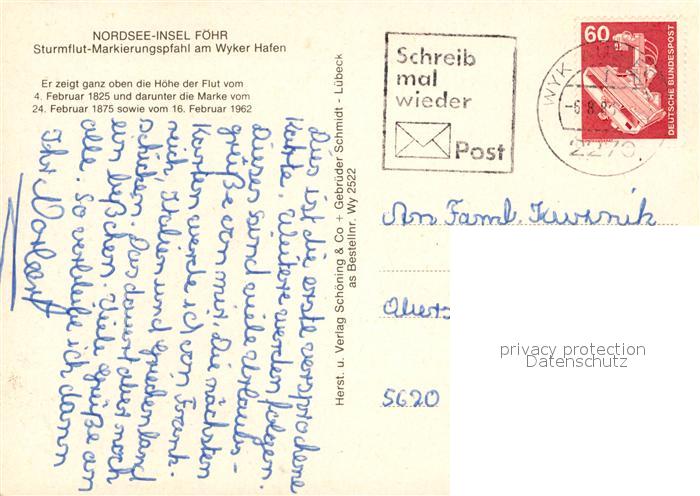 NORDSEE-INSEL FÖHR
Sturmflut-Markierungspfahl am Wyker Hafen
Er zeigt ganz oben die Höhe der Flut vom
4. Februar 1825 und darunter die Marke vom
24. Februar 1875 sowie vom 16. Februar 1962
Dies ist die erste versprochene
Karte. Weitere werden folgen.
Dieses sind viele Urlaubs-
grüße von mir. Die nächsten
Karten werde ich von Frank-
reich, Italien und griechenland
schicken. Das dauert aber noch
ein bißchen. Viele grüße an
alle. So verbleibe ich dann
Ihr
Herst. u. Verlag Schöning & Co + Gebrüder Schmidt - Lübeck
as Bestellnr. Wy 2522
Schreib
mal
wieder
Post
60
DEUTSCHE BUNDESPOST
WYK
-6.8.8
2270
An Faml.
5620
privacy protection
Datenschutz